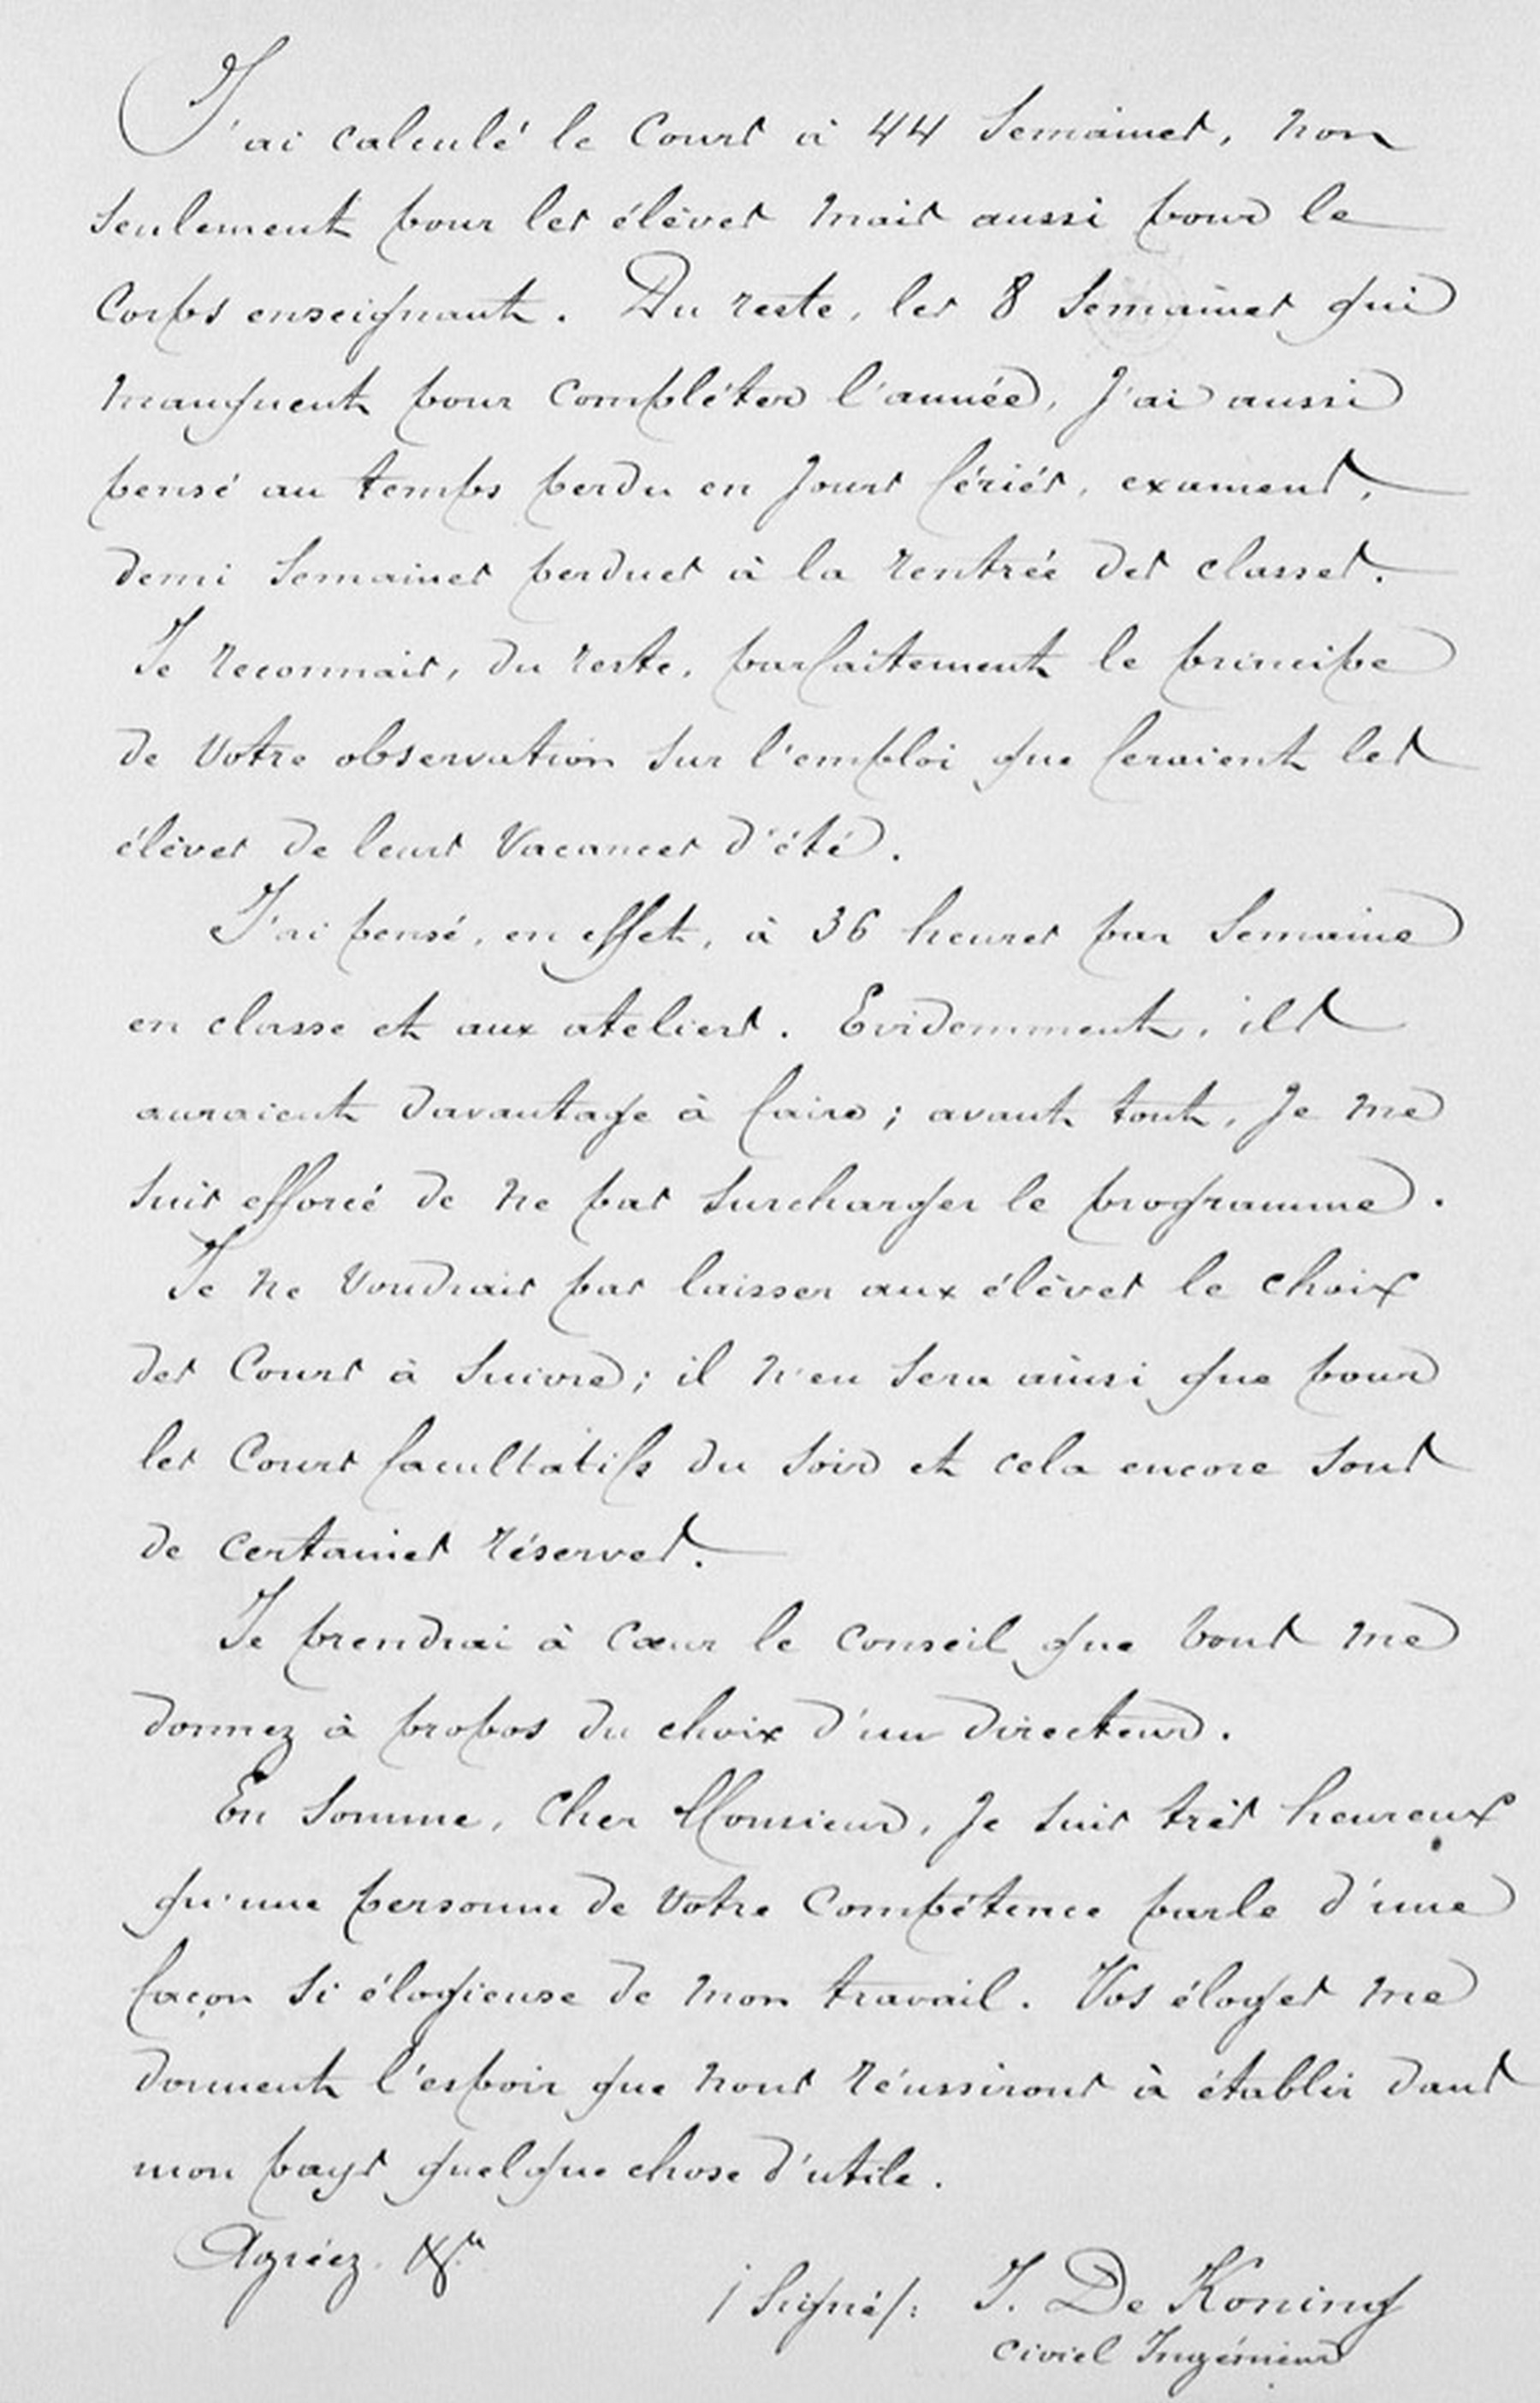 J'ai calculé le Cours à 44 Semaines, non
seulement pour les élèves mais aussi pour le
Corps enseignant. Du reste, les 8 Semaines qui
manquent pour compléter l'année, j'ai aussi
pensé au temps perdu en jours fériés, examens,
demi Semaines perdues à la rentrée des classes.
Je reconnais, du reste, parfaitement le principe
de votre observation sur l'emploi que feraient les
élèves de leurs Vacances d'été.
J'ai pensé, en effet, à 36 heures par Semaine
en classe et aux ateliers. Evidemment, ils
auraient davantage à faire; avant tout, je me
suis efforcé de ne pas surcharger le programme.
Je ne voudrais pas laisser aux élèves le choix
des Cours à suivre; il n'en sera ainsi que pour
les Cours facultatifs du soir et cela encore sous
de certaines réserves.
Je prendrai à cœur le conseil que vous me
donnez à propos du choix d'un directeur.
En somme, Cher Monsieur, je suis très heureux
qu'une personne de votre Compétence parle d'une
façon si élogieuse de mon travail. Vos éloges me
donnent l'espoir que nous réussirons à établir dans
mon pays quelque chose d'utile.
Agréez, &a
/Signé/: J. De Koning
Civiel Ingénieur